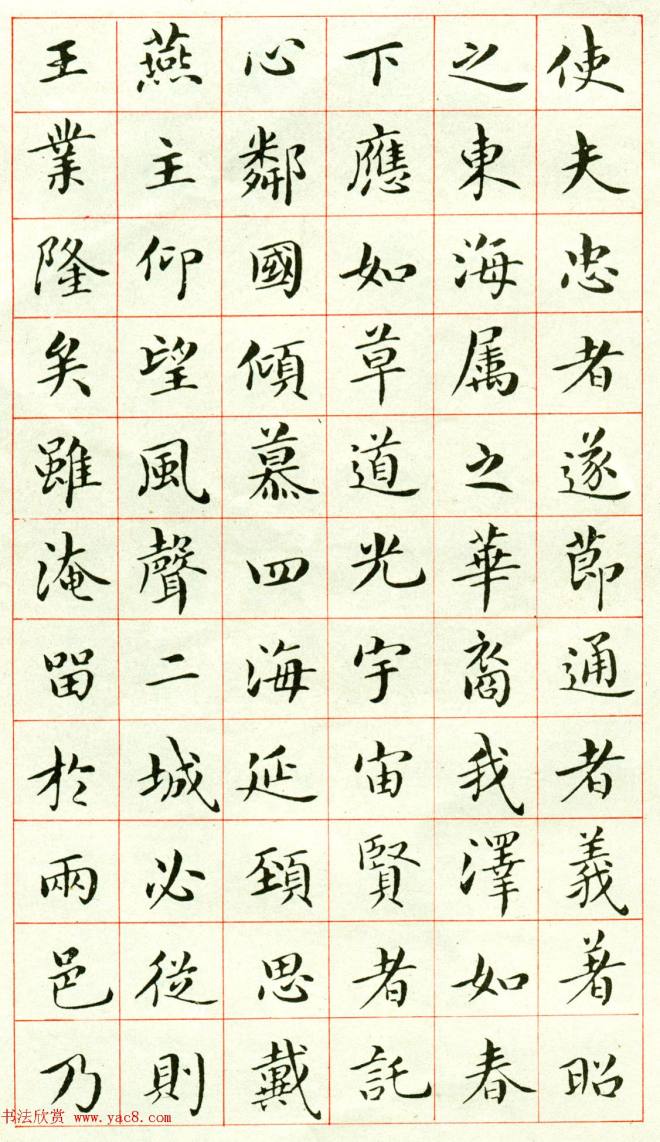 使夫忠者遂節通者義著昭
之東海屬之華裔我澤如春
下應如草道光宇宙賢者託
心鄰國傾慕四海延頸思戴
燕主仰望風聲二城必從則
王業隆矣雖淹留於兩邑乃
书法欣赏 www.yac8.com